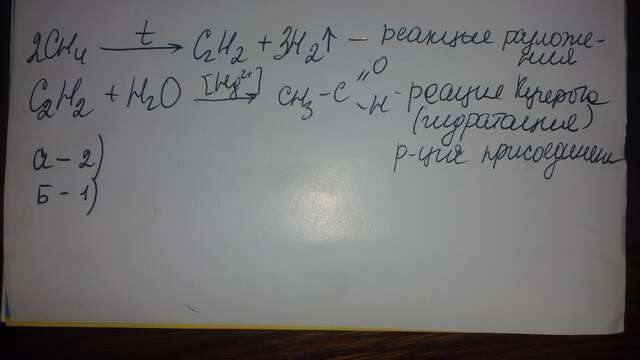 2CH₄ —t→ C₂H₂ + 3H₂↑ — реакция разложе-
ния
C₂H₂ + H₂O —[Hg²⁺]→ CH₃-C =O -H - реакция Кучерова
(гидратация)
р-ция присоединения
а - 2)
Б - 1)